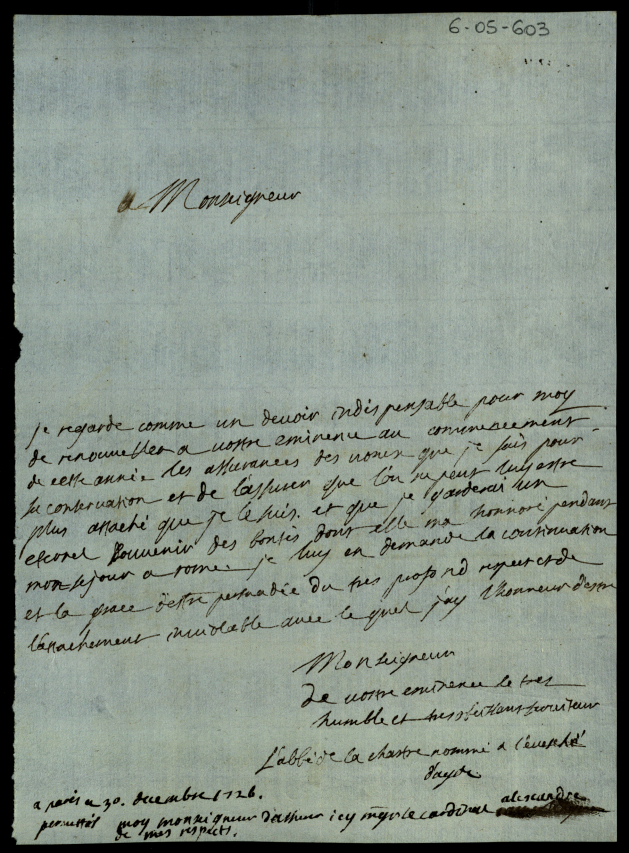 6-05-603
Monseigneur
je regarde comme un devoir indispensable pour moy
de renouveller a vostre eminence au commencement
de cette année les assurances des voeux que je fais pour
sa conservation et de l'assurer que l'on ne peut luy estre
plus attaché que je le suis. et que je garderai un
eternel souvenir des bontés dont elle ma honnoré pendant
mon sejour a rome. je luy en demande la continuation
et la grace d'estre persuadée du tres profond respect et de
l'attachement inviolable avec le quel j'ay l'honneur d'estre
Monseigneur
de vostre eminence le tres
humble et tres obeissant serviteur
L'abbé de la chastre nommé a l'evesché
d'agde
a paris ce 30. decembre 1726.
permettés moy monseigneur d'assurer icy mgr le cardinal alexandre
de mes respects.